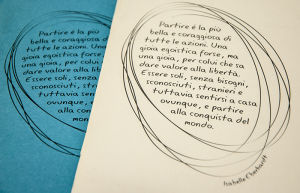 Partire è la più
bella e coraggiosa di
tutte le azioni. Una
gioia egoistica forse, ma
una gioia, per colui che sa
dare valore alla libertà.
Essere soli, senza bisogni,
sconosciuti, stranieri e
tuttavia sentirsi a casa
ovunque,
mond
Partire è la più
bella e coraggiosa di
tutte le azioni. Una
gioia egoistica forse, ma
una gioia, per colui che sa
dare valore alla libertà.
Essere soli, senza bisogni,
sconosciuti, stranieri e
tuttavia sentirsi a casa
ovunque, e partire
alla conquista del
mondo.
Isabelle Eberhardt